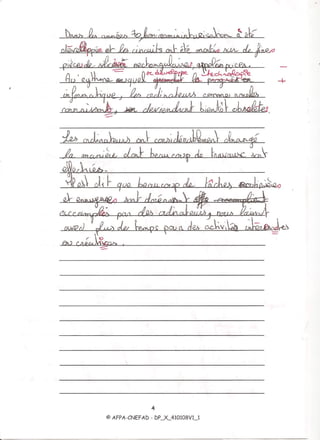 Dans les années 70, la microminiaturisation a été
développée et les circuits ont été mis sur de fines
pièces de silicium rectangulaires, appelées puces.
Au rythme auquel se développe la technologie
informatique, les ordinateurs comme nous les
connaissons, deviendront bientôt obsolètes.
Les ordinateurs ont considérablement changé
la manière dont beaucoup de travaux sont
effectués.
Il est dit que beaucoup de tâches
et ennuyeuses sont dorénavant
accomplies par des ordinateurs, nous laissant
avec plus de temps pour des activités intéressantes
ou créatives.
4
© AFPA-CNEFAD - DP_X_410108V1_1